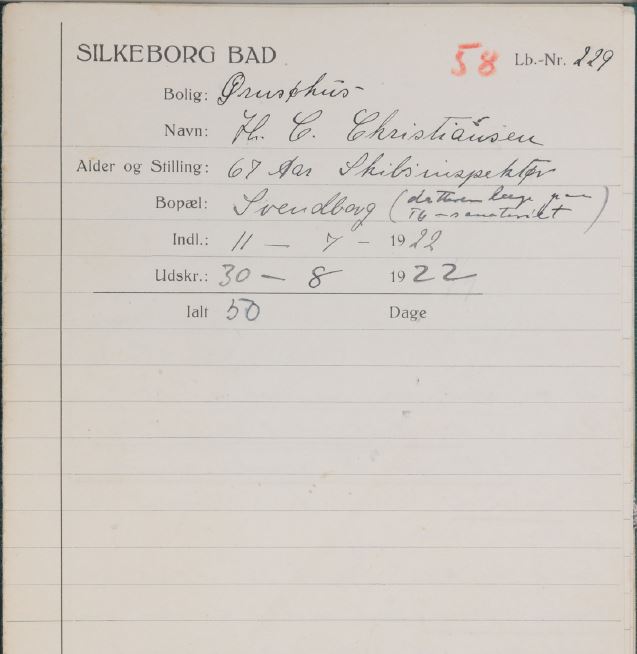 SILKEBORG BAD 58 Lb.-Nr. 229
Bolig:
Navn: H. C. Christiansen
Alder og Stilling: 67 Aar Skibsinspektør
Bopæl: Svendborg (datteren læge paa
Tb-sanatoriet)
Indl.: 11 - 7 - 1922
Udskr.: 30 - 8 1922
Ialt 50 Dage